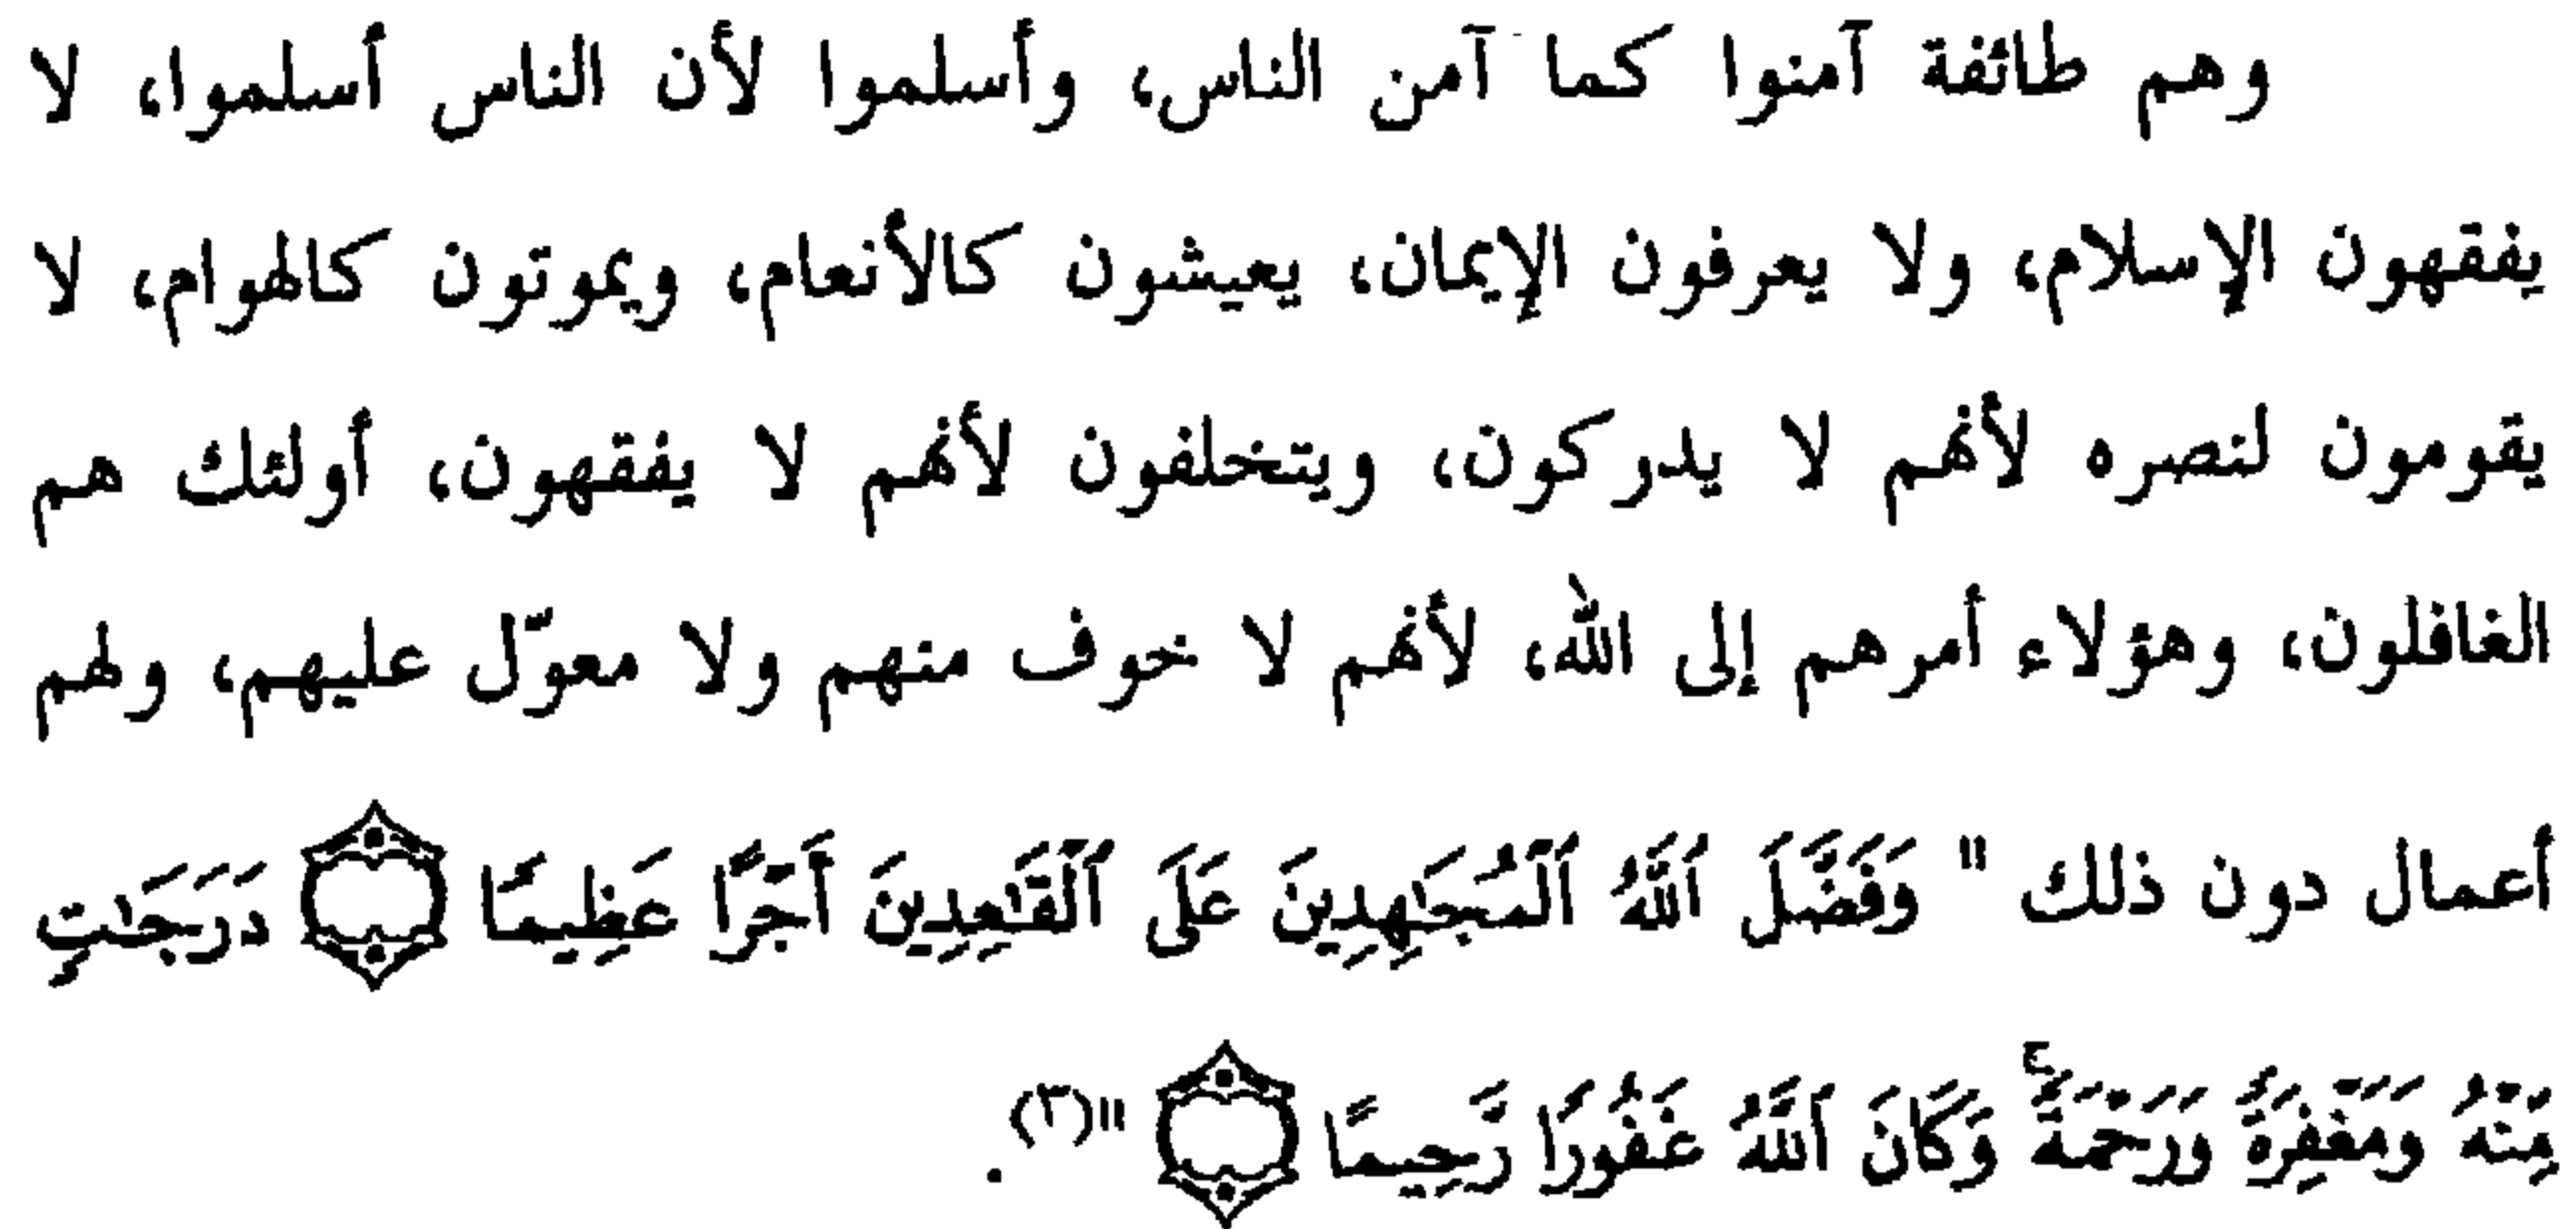 وهم طائفة آمنوا كما آمن الناس، وأسلموا لأن الناس أسلموا، لا
يفقهون الإسلام، ولا يعرفون الإيمان، يعيشون كالأنعام، ويموتون كالهوام، لا
يقومون لنصره لأنهم لا يدركون، ويتخلفون لأنهم لا يفقهون، أولئك هم
الغافلون، وهؤلاء أمرهم إلى الله، لأنهم لا خوف منهم ولا معوّل عليهم، ولهم
أعمال دون ذلك " وَفَضَّلَ ٱللَّهُ ٱلْمُجَـٰهِدِينَ عَلَى ٱلْقَـٰعِدِينَ أَجْرًا عَظِيمًا ۝ دَرَجَـٰتٍ
مِّنْهُ وَمَغْفِرَةً وَرَحْمَةً ۚ وَكَانَ ٱللَّهُ غَفُورًا رَّحِيمًا ۝ "(٣).